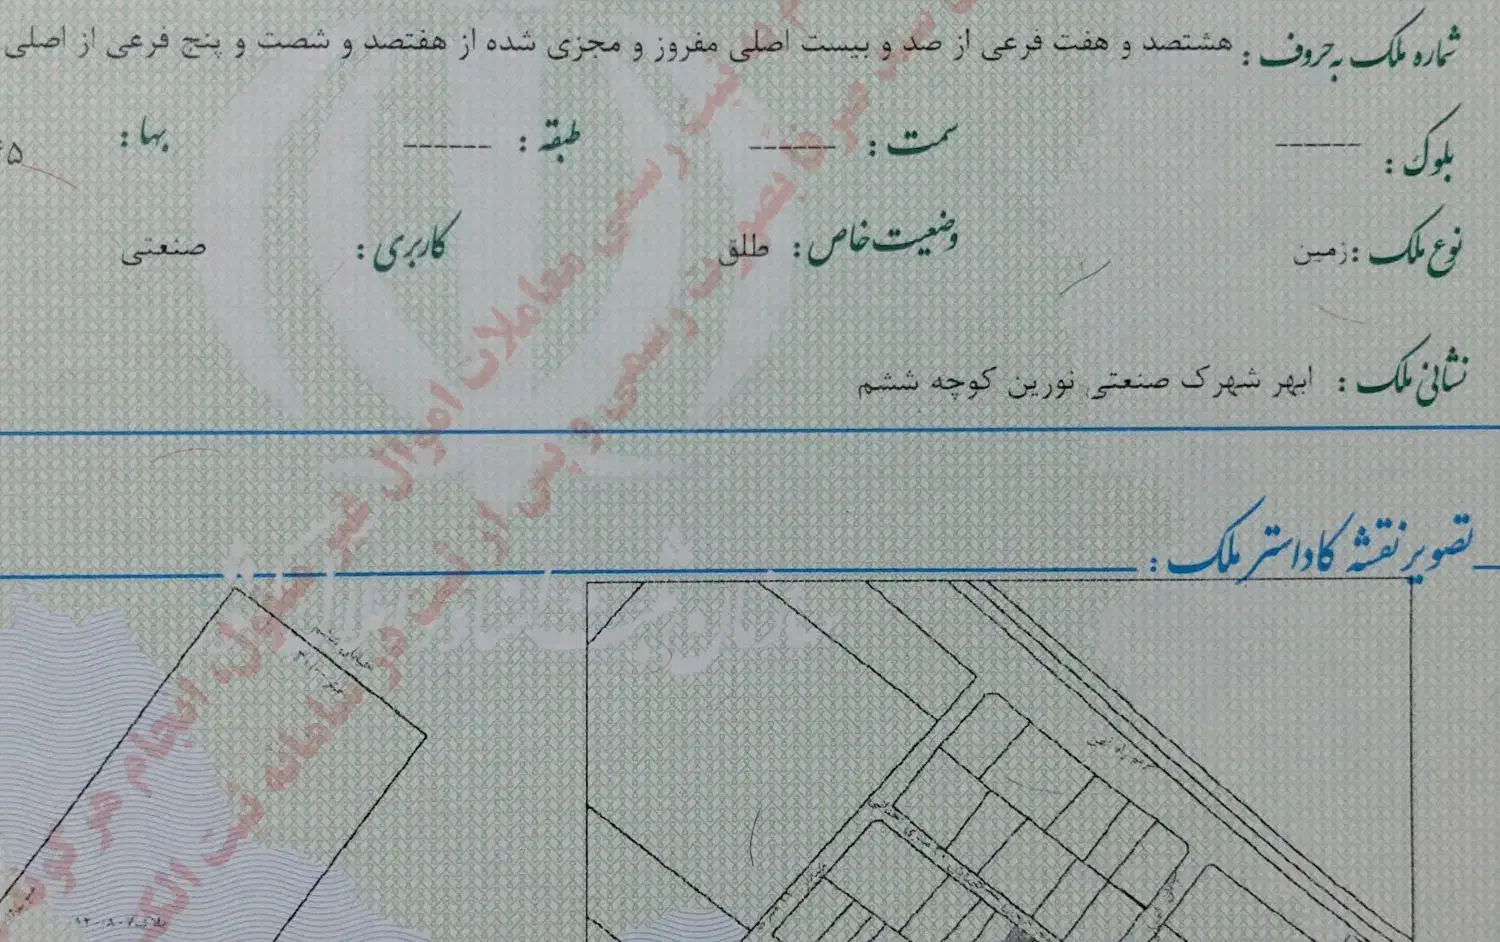 شماره ملک به حروف : هشتصد و هفت فرعی از صد و بیست اصلی مفروز و مجزی شده از هفتصد و شصت و پنج فرعی از اصلی
بلوک : ------ سمت : ------ طبقه : ------ بها :
نوع ملک : زمین وضعیت خاص : طلق کاربری : صنعتی
نشانی ملک : ابهر شهرک صنعتی نورین کوچه ششم
تصویر نقشه کاداستر ملک :
ثبت رسمی معاملات اموال غیر منقول، انجام هر گونه
بصورت رسمی و پس از ثبت در سامانه ثبت الک